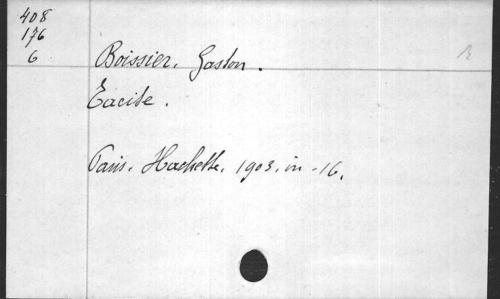 408
176
6
Boissier, Gaston.
Tacite.
Paris, Hachette, 1903, in-16.